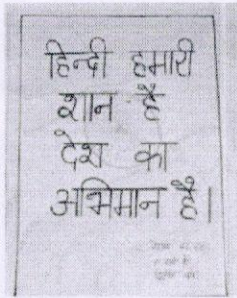 हिन्दी हमारी
शान है
देश का
अभिमान है।